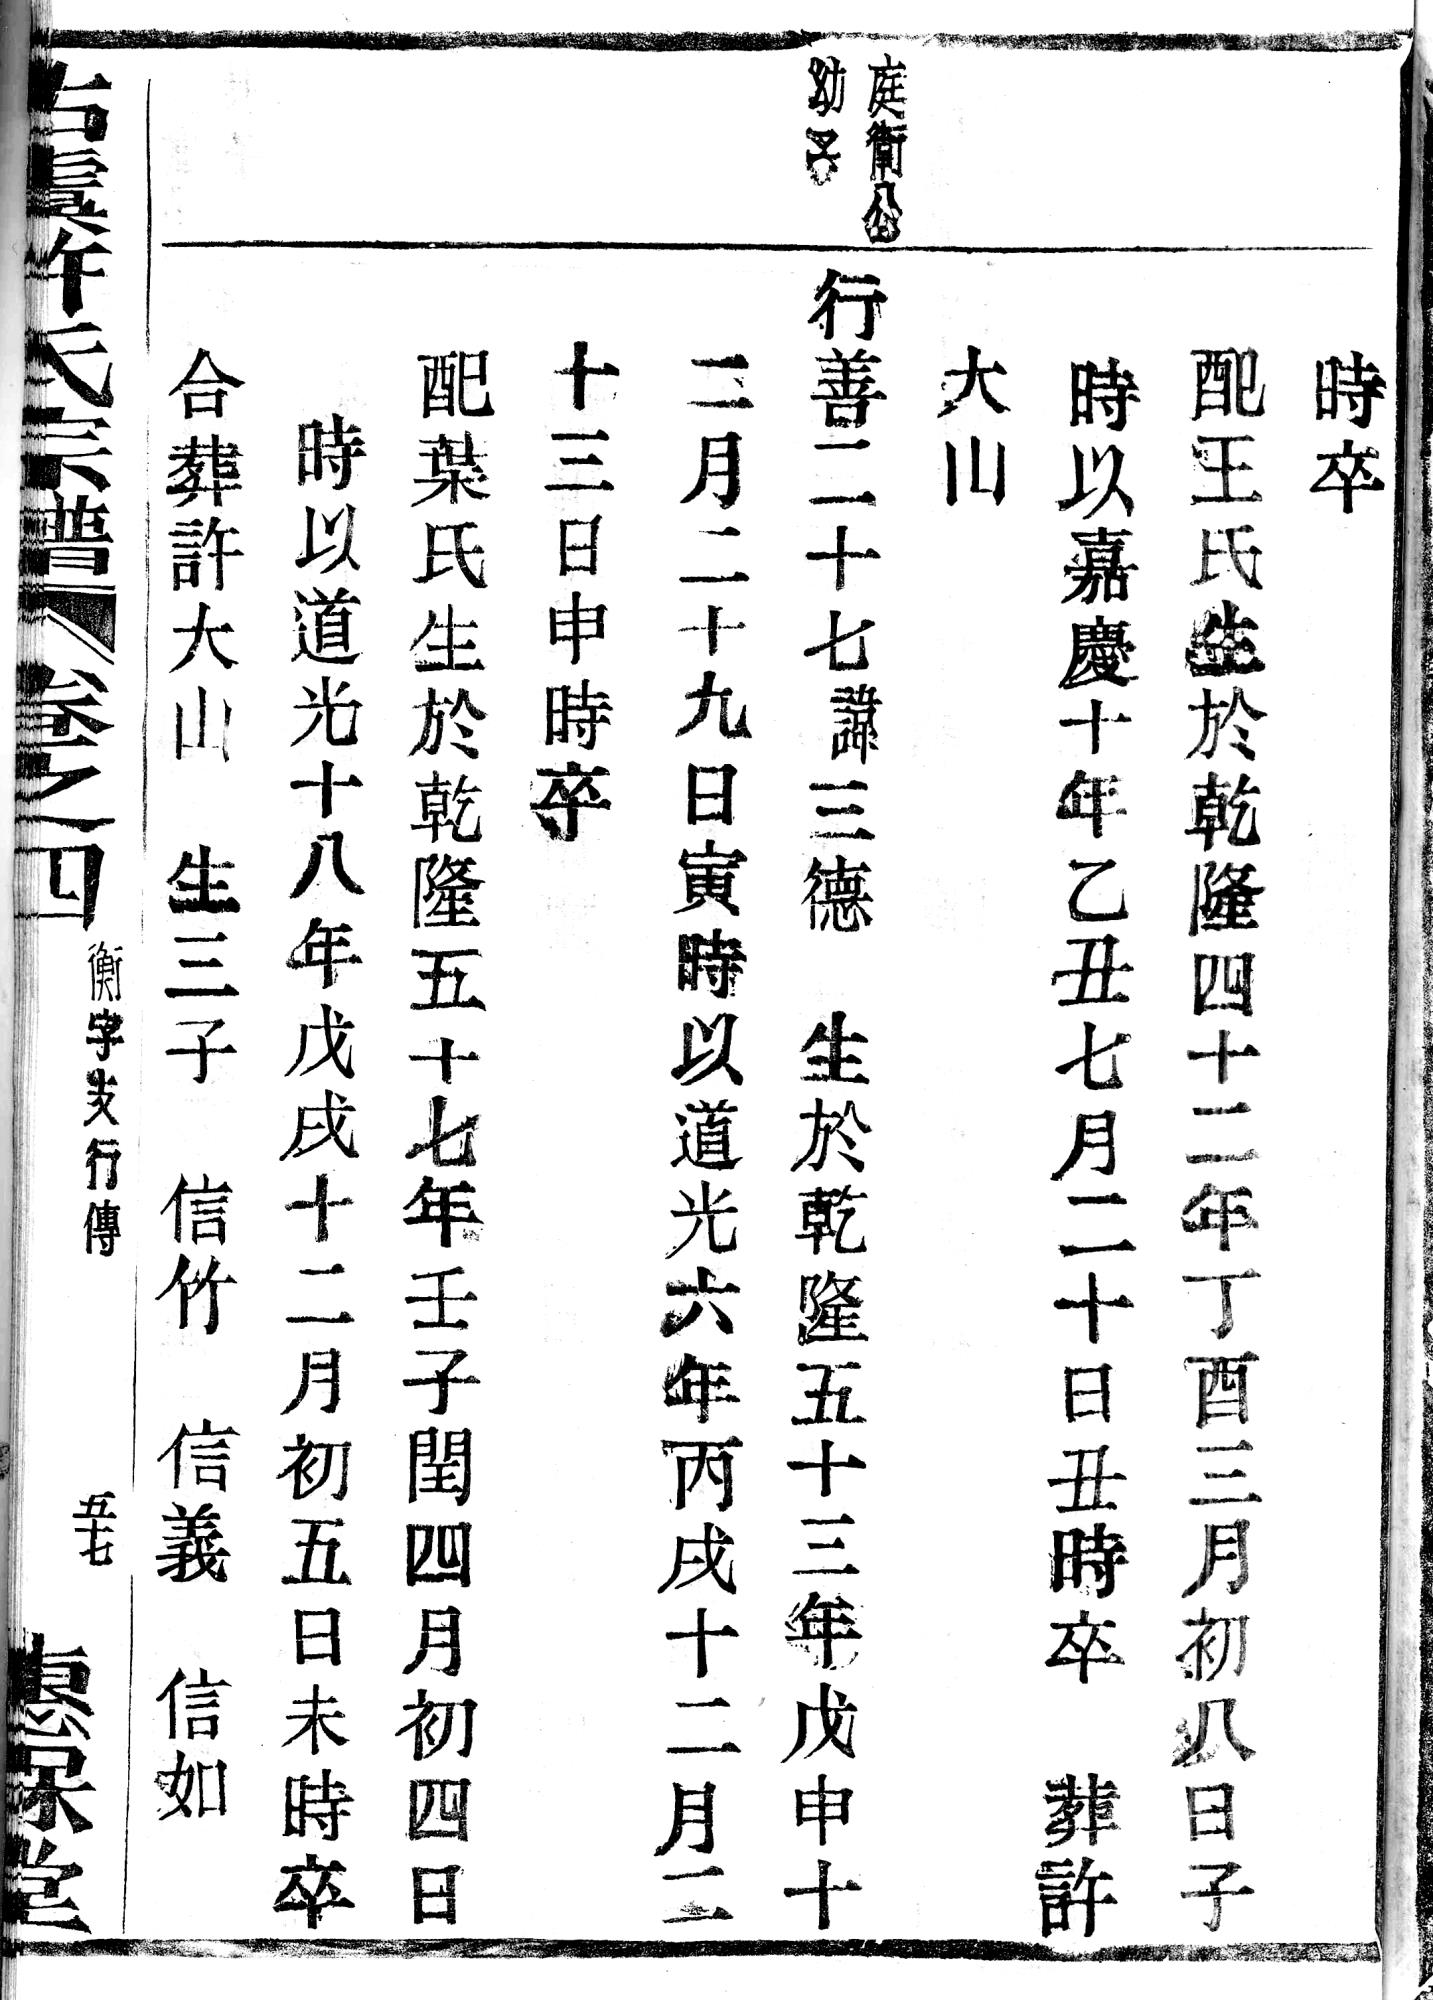 時卒
配王氏生於乾隆四十二年丁酉三月初八日子
時以嘉慶十年乙丑七月二十日丑時卒　葬許
大山
庭衡公
幼子
行善二十七諱三德　生於乾隆五十三年戊申十
二月二十九日寅時以道光六年丙戌十二月二
十三日申時卒
配葉氏生於乾隆五十七年壬子閏四月初四日
時以道光十八年戊戌十二月初五日未時卒
合葬許大山　生三子　信竹　信義　信如
古虞許氏宗譜　卷之四　衡字支行傳　五十七　惠保堂